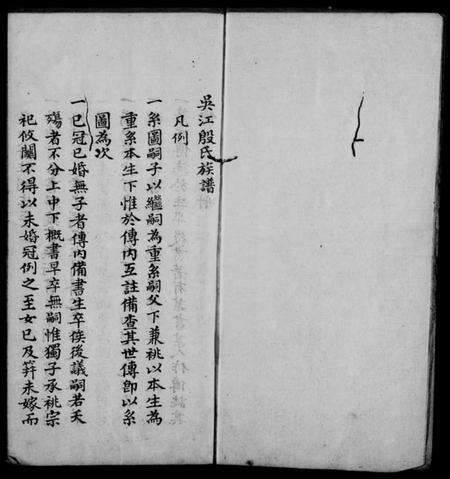 吳江殷氏族譜
凡例
一系圖嗣子以繼嗣為重系嗣父下兼祧以本生為
重系本生下惟於傳內互註備查其世傳即以系
圖為次
一已冠已婚無子者傳內備書生卒俟後議嗣若夭
殤者不分上中下概書早卒無嗣惟獨子承祧宗
祀攸關不得以未婚冠例之至女已及笄未嫁而